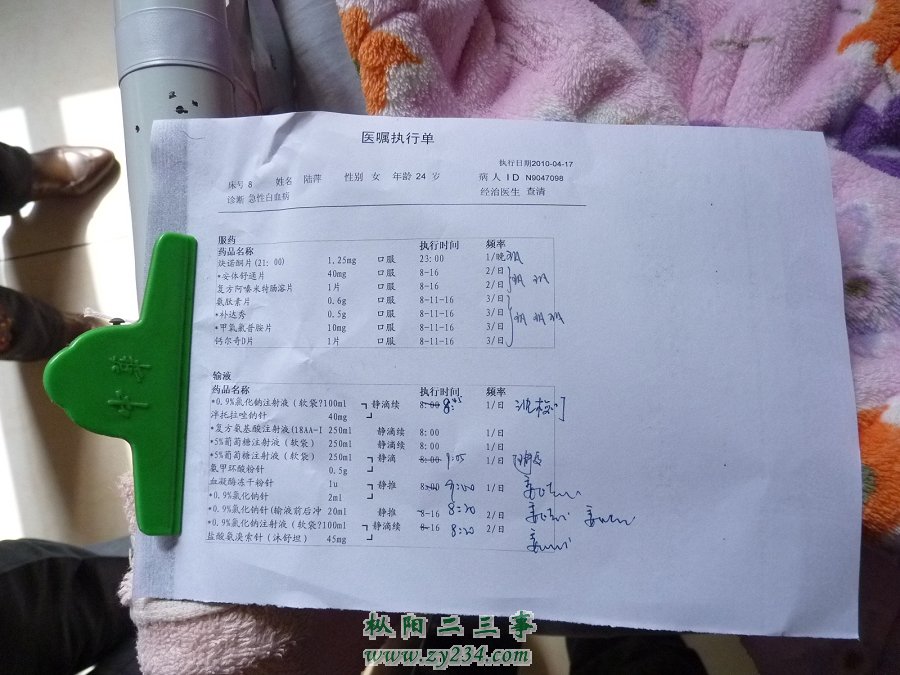 医嘱执行单
执行日期2010-04-17
床号 8 姓名 陆萍 性别 女 年龄 24 岁 病 人 I D N9047098
诊断 急性白血病 经治医生 查清
服药
药品名称 执行时间 频率
炔诺酮片(21: 00) 1.25mg 口服 23:00 1/晚
*安体舒通片 40mg 口服 8-16 2/日
复方阿嗪米特肠溶片 1片 口服 8-16 2/日
氨肽素片 0.6g 口服 8-11-16 3/日
*补达秀 0.5g 口服 8-11-16 3/日
*甲氧氯普胺片 10mg 口服 8-11-16 3/日
钙尔奇D片 1片 口服 8-11-16 3/日
输液
药品名称 执行时间 频率
*0.9%氯化钠注射液（软袋?100ml 静滴续 8:00 8:45 1/日
泮托拉唑钠针 40mg
*复方氨基酸注射液(18AA-I 250ml 静滴续 8:00 1/日
*5%葡萄糖注射液（软袋） 250ml 静滴续 8:00 1/日
*5%葡萄糖注射液（软袋） 250ml 静滴 8:00 9:05 1/日
氨甲环酸粉针 0.5g
血凝酶冻干粉针 1u 静推 8:00 9:00 1/日
*0.9%氯化钠针 2ml
*0.9%氯化钠针(输液前后冲 20ml 静推 8-16 8:20 2/日
*0.9%氯化钠注射液（软袋?100ml 静滴续 8-16 8:20 2/日
盐酸氨溴索针（沐舒坦） 45mg
枞阳二三事
www.zy234.com